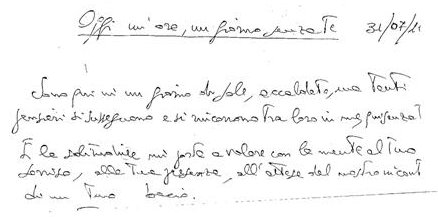 Oggi un'ora, un giorno senza te 31/07/11
Sono qui in un giorno di sole, accaldato, ma tanti
pensieri si susseguono e si rincorrono tra loro in
E la solitudine mi porta a volare con la mente al tuo
sorriso, alla tua presenza, all'attesa del nostro
di un tuo bacio.